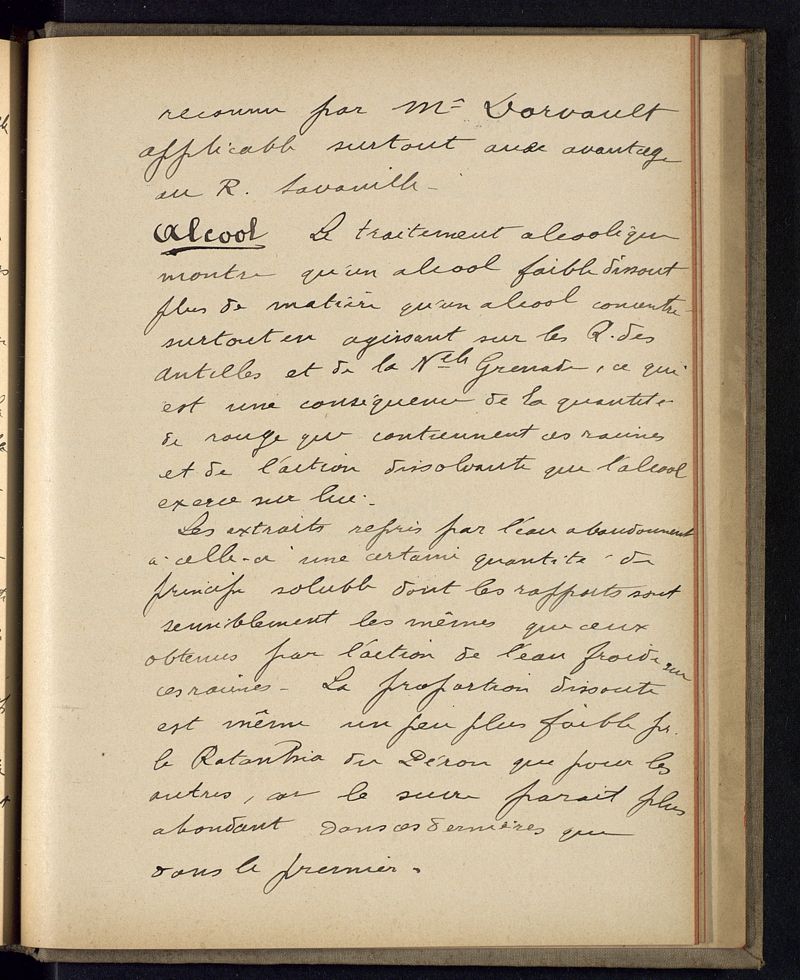 reconnu par Mr Dorvault
applicable surtout aux avantage
au R. Savanille -
Alcool Le traitement alcoolique
montre qu'un alcool faible dissout
plus de matière qu'un alcool concentré
surtout en agissant sur les R. des
Antilles et de la Nelle Grenade, ce qui
est une conséquence de la quantité
de rouge que contiennent ces racines
et de l'action dissolvante que l'alcool
exerce sur lui.
Les extraits repris par l'eau abandonnent
à celle-ci une certaine quantité de
principe soluble dont les rapports sont
sensiblement les mêmes que ceux
obtenus par l'action de l'eau froide sur
ces racines - La proportion dissoute
est même un peu plus faible pr.
le Ratanhia du Pérou que pour les
autres, car le sucre parait plus
abondant dans ces dernières que
dans le premier.